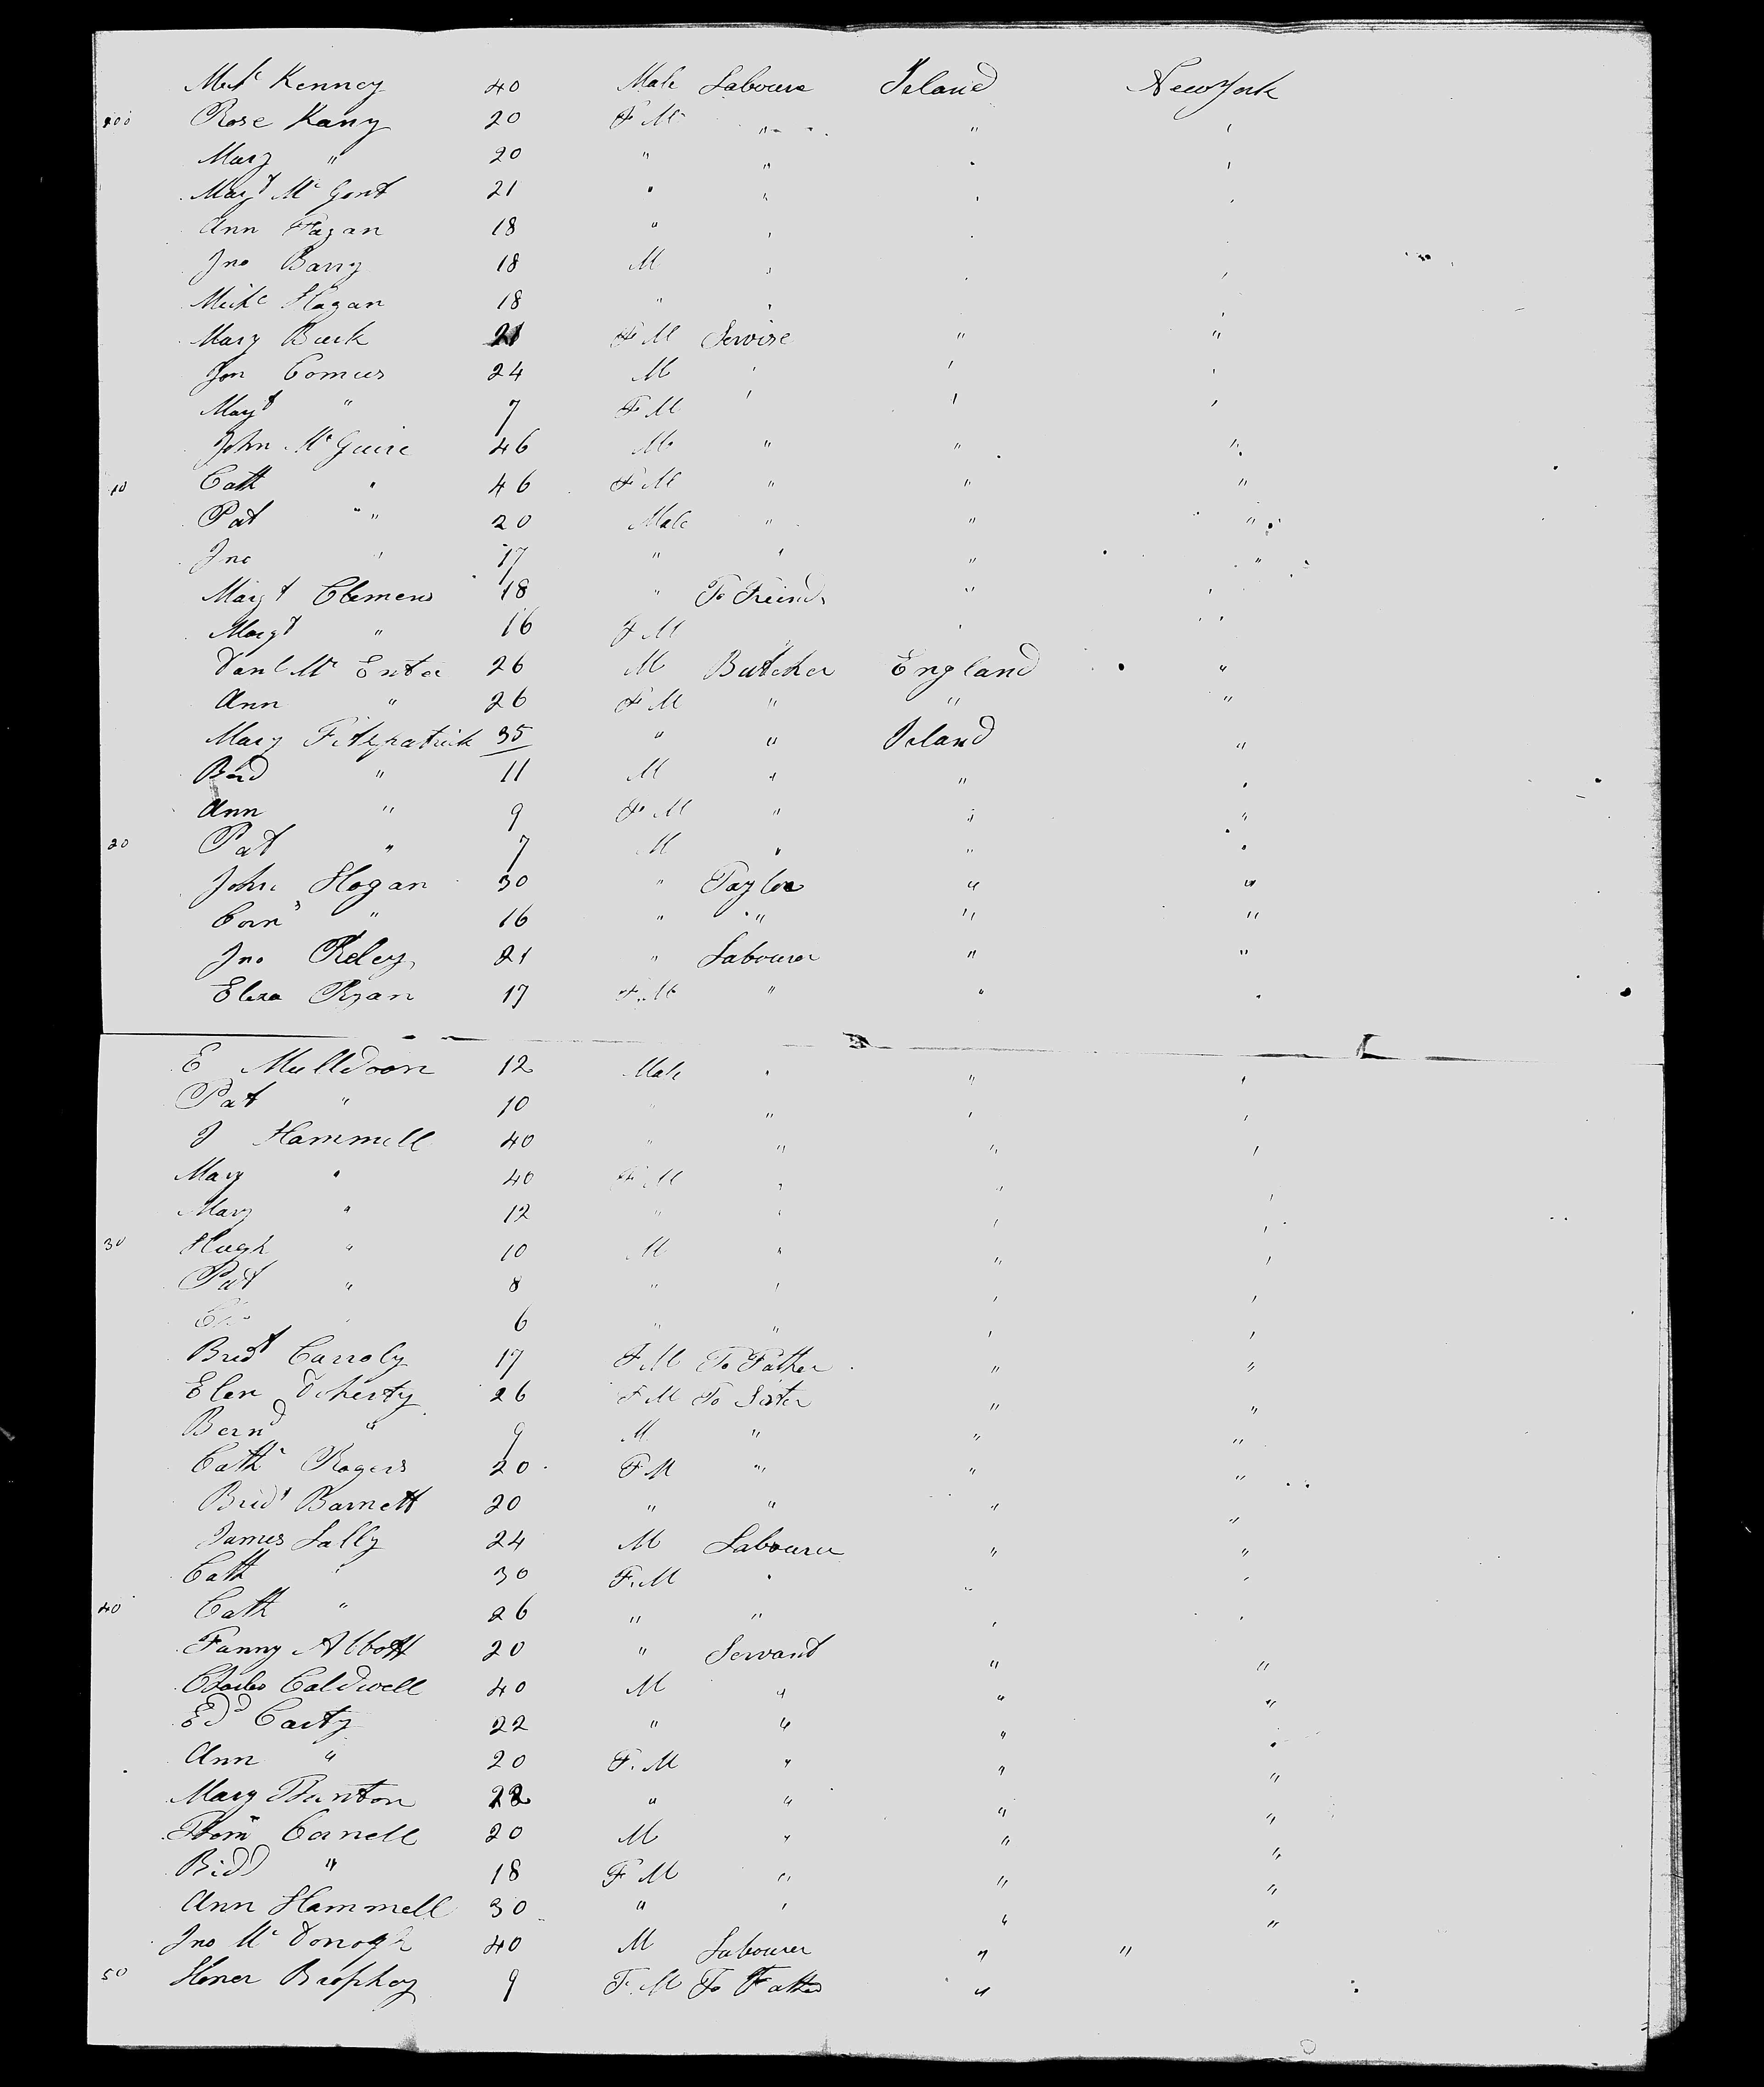 Kenney 40 Male Labourer Ireland New York
Rose Kany 20 F M " " '
Mary " 20 " " " '
Margt Mc Gont 21 " " ' '
Ann Fagan 18 " ' '
Jno Barry 18 M ' ' '
Hagan 18 " ' '
Mary Burk 21 F M Servise " "
Jon 24 M ' ' '
Margt " 7 F M ' ' '
John Mc Guire 46 M " " "
10 Cath " 46 F M " " "
Pat " " 20 Male " " "
Jno " 17 " " " "
Margt Clemens 18 " To Freinds " '
Margt " 16 F M ' '
Danl Mc Enter 26 M Butcher England "
Ann " 26 F M " " "
Mary Fitzpatrick 35 " " Ireland "
" 11 M " " "
Ann " 9 F M " " "
20 Pat " 7 M " " "
John Hogan 30 " Taylor " "
Corns " 16 " " " "
Jno Reley 21 " Labourer " "
Eliza Ryan 17 F.M " " "
E Mulldoon 12 Male " " '
Pat " 10 " " ' '
J Hammell 40 " " " '
Mary " 40 F M " " '
Mary " 12 " ' ' '
30 Hugh " 10 M " " '
Pat " 8 " ' ' '
6 " " ' '
Bridt Carroly 17 F M To Father " "
Elen Doherty 26 F M To Sister " "
Bernd " 9 M " " "
Cath Rogers 20 F M " " "
Bridt Barnett 20 " " " "
James Lally 24 M Labourer " "
Cath " 30 F.M " " '
40 Cath " 26 " " ' '
Fanny Abbott 20 " Servant " "
Charles Caldwell 40 M " " "
Edd Carty 22 " " " "
Ann " 20 F. M " " "
Mary Thunton 22 " " " "
Thom Cornell 20 M " " "
Bidd " 18 F M " " "
Ann Hammell 30 " ' " "
Jno Mc Donogh 40 M Labourer " "
50 Honer Brophey 9 F.M To Father "